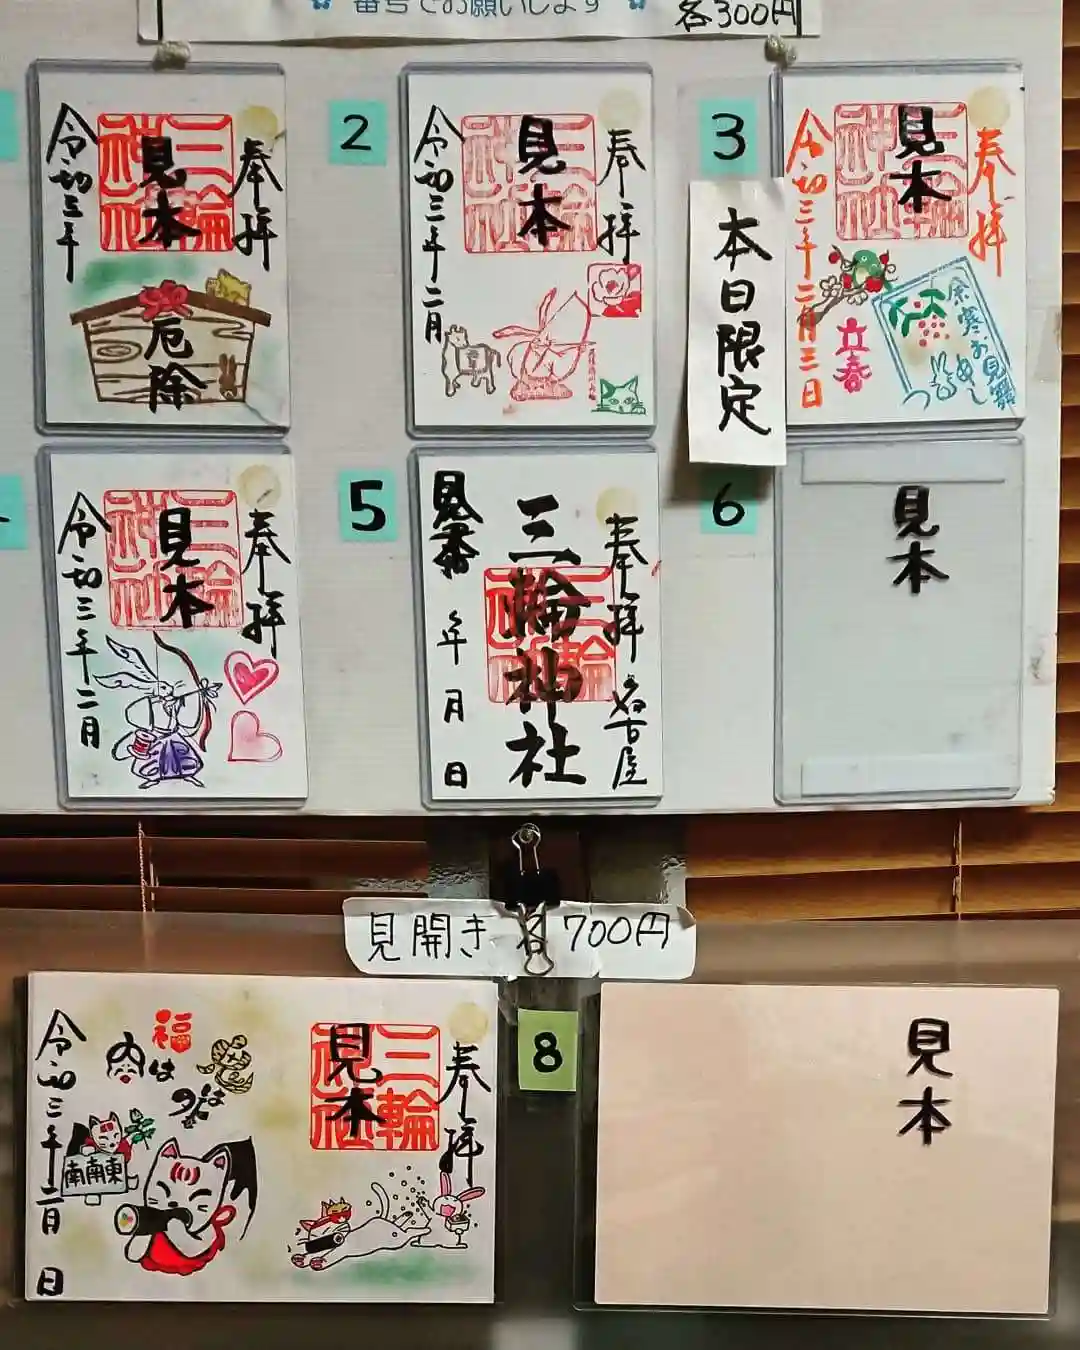 番号でお願いします
各300円
奉拝
三輪神社
見本
令和三年
厄除
2
奉拝
三輪神社
見本
令和三年二月
3
本日限定
奉拝
三輪神社
見本
令和三年二月三日
立春
余寒お見舞
申し
奉拝
三輪神社
見本
令和三年二月
5
奉拝
名古屋
三輪神社
見本
年 月 日
6
見本
見開き 各700円
奉拝
三輪神社
見本
福は
内
鬼は
外
南南東
令和三年二月 日
8
見本